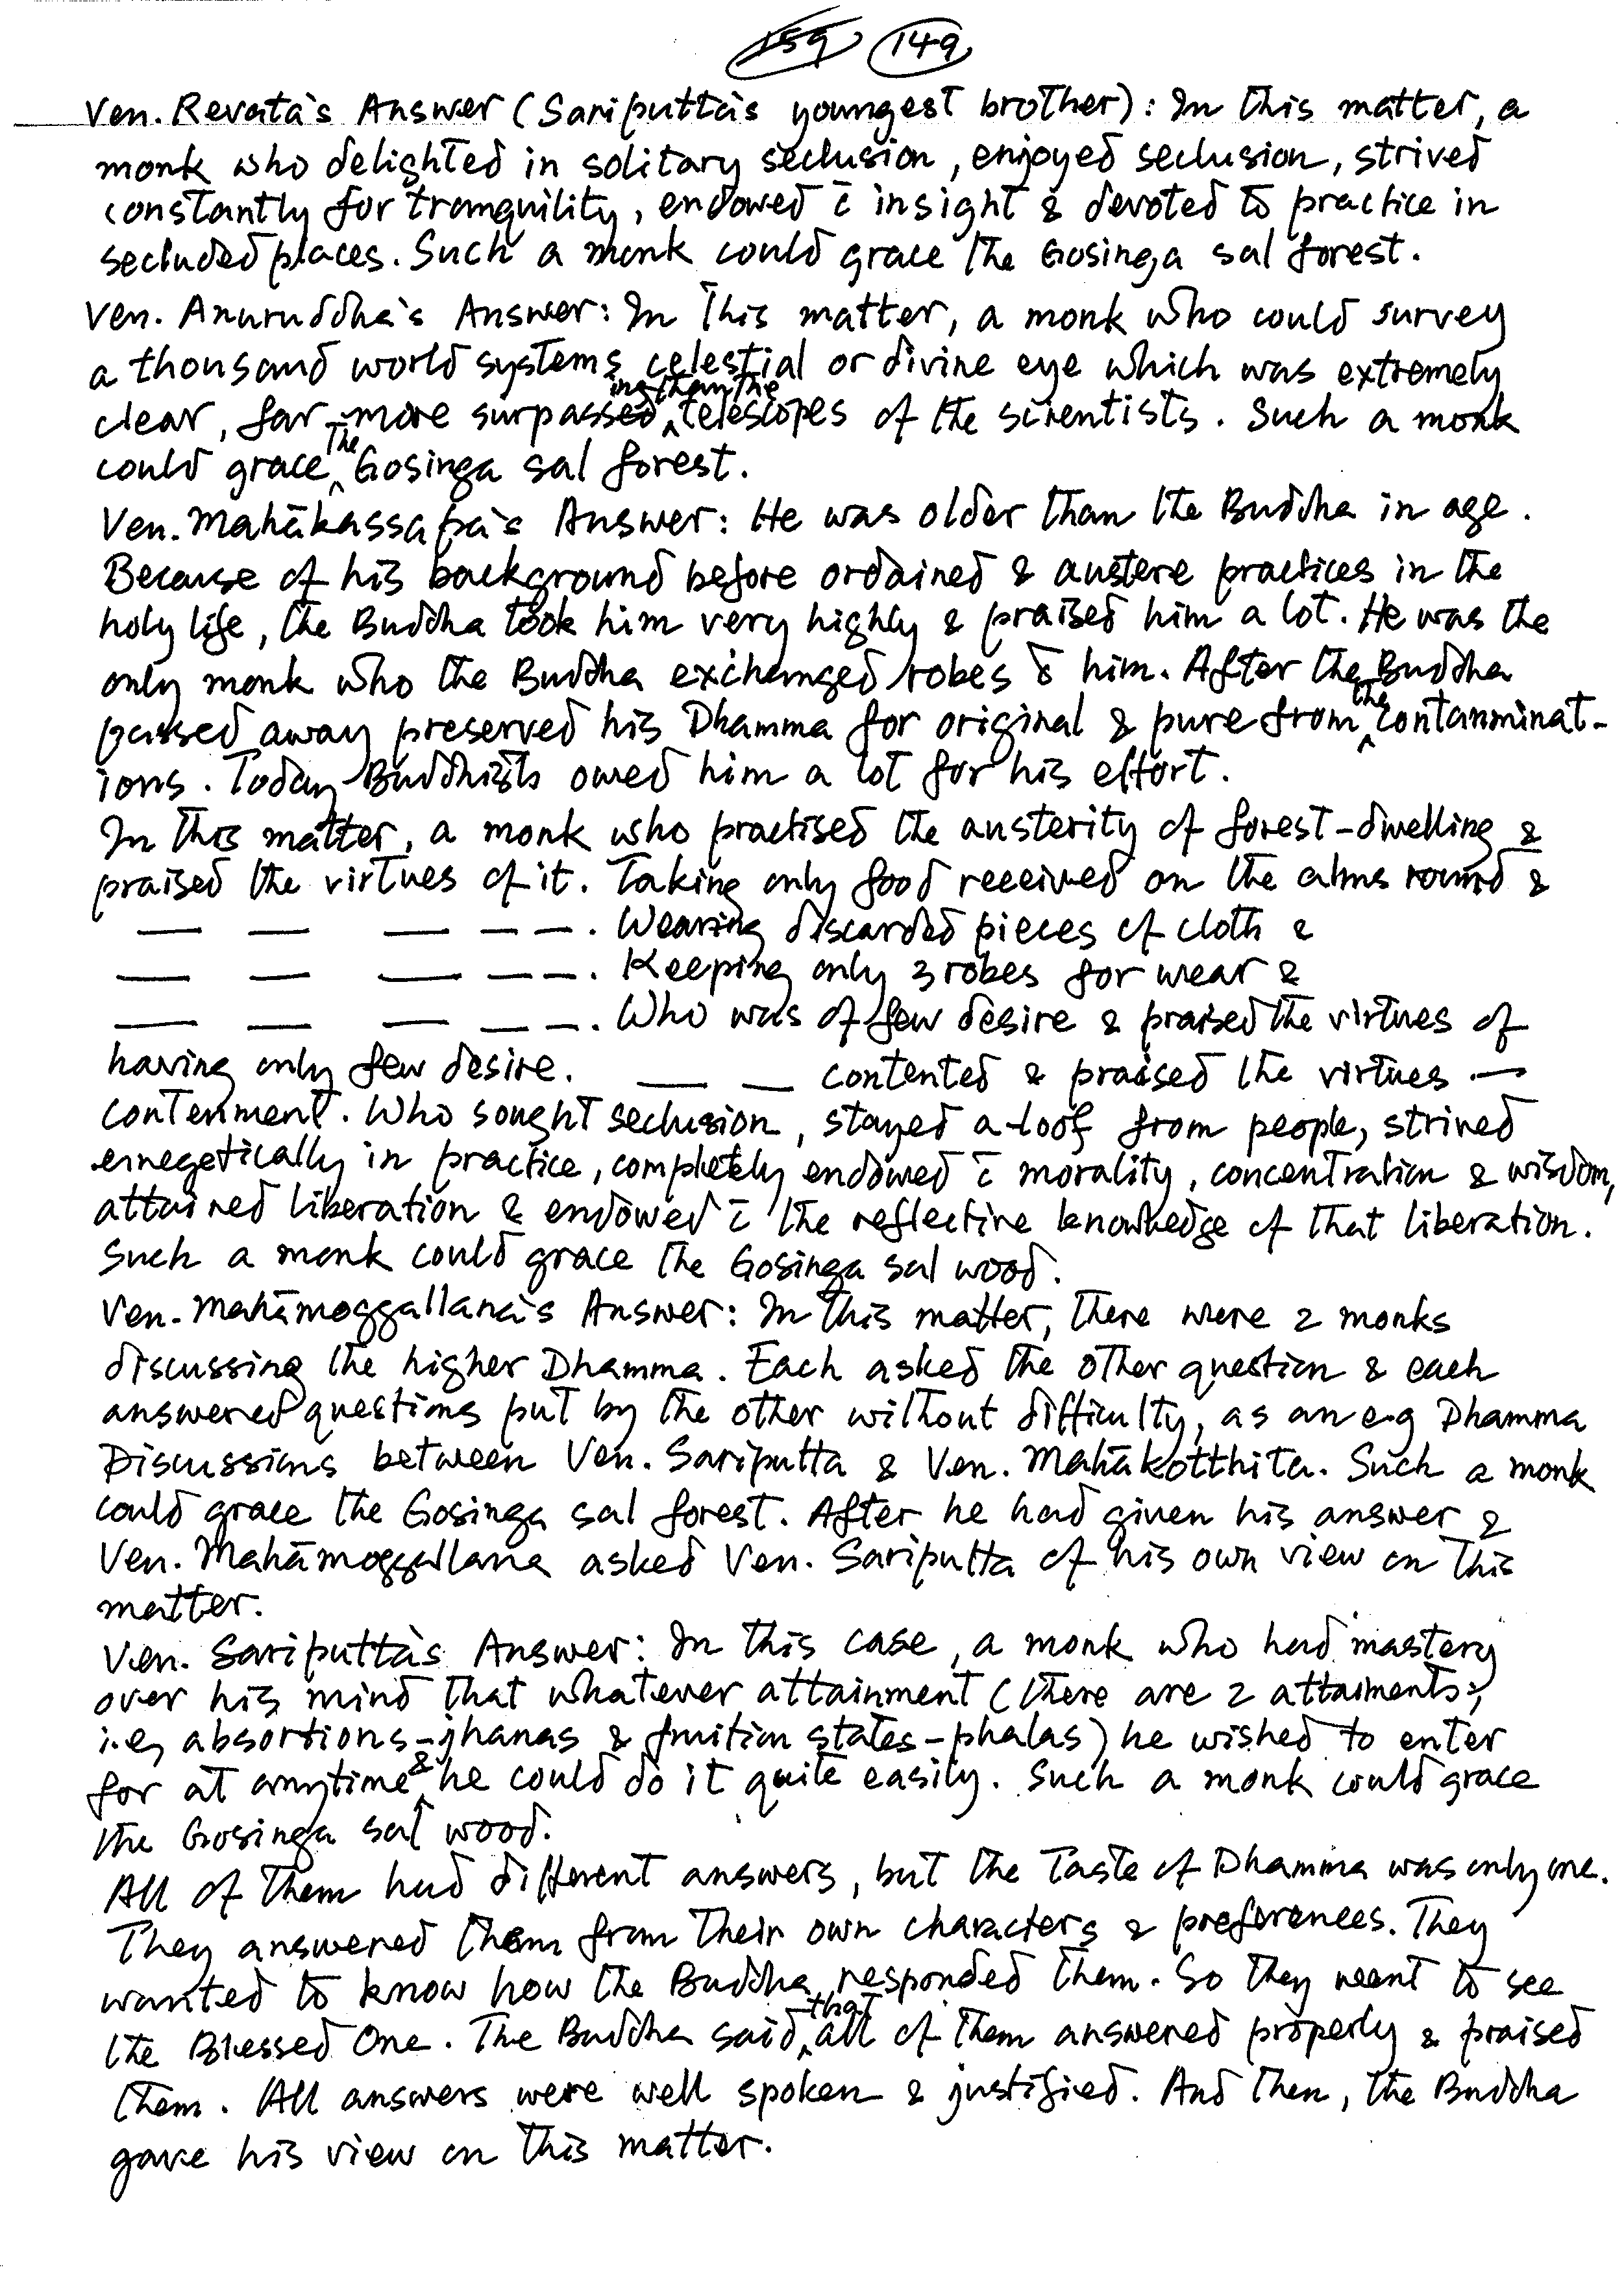 159 149
Ven. Revata's Answer (Sariputta's youngest brother): In this matter, a
monk who delighted in solitary seclusion, enjoyed seclusion, strived
constantly for tranquility, endowed c̄ insight & devoted to practice in
secluded places. Such a monk could grace the Gosinga sal forest.
Ven. Anuruddha's Answer: In this matter, a monk who could survey
a thousand world systems celestial or divine eye which was extremely
clear, far-more surpassing than the telescopes of the scientists. Such a monk
could grace the Gosinga sal forest.
Ven. Mahākassapa's Answer: He was older than the Buddha in age.
Because of his background before ordained & austere practices in the
holy life, the Buddha took him very highly & praised him a lot. He was the
only monk who the Buddha exchanged robes c̄ him. After the Buddha
passed away preserved his Dhamma for original & pure from the contanminat-
ions. Today Buddhists owed him a lot for his effort.
In this matter, a monk who practised the austerity of forest-dwelling &
praised the virtues of it. Taking only food received on the alms round &
— — — — —. Wearing discarded pieces of cloth &
— — — — —. Keeping only 3 robes for wear &
— — — — —. Who was of few desire & praised the virtues of
having only few desire. — — contented & praised the virtues —
contenment. Who sought seclusion, stayed a-loof from people, strived
ernegetically in practice, completely endowed c̄ morality, concentration & wisdom,
attained liberation & endowed c̄ the reflective knowledge of that liberation.
Such a monk could grace the Gosinga sal wood.
Ven. Mahāmoggallana's Answer: In this matter, there were 2 monks
discussing the higher Dhamma. Each asked the other question & each
answered questions put by the other without difficulty, as an e.g Dhamma
Discussions between Ven. Sariputta & Ven. Mahākotthita. Such a monk
could grace the Gosinga sal forest. After he had given his answer &
Ven. Mahāmoggallana asked Ven. Sariputta of his own view on this
matter.
Ven. Sariputta's Answer: In this case, a monk who had mastery
over his mind that whatever attainment (there are 2 attaiments;
i.e, absortions-jhanas & fruition states-phalas) he wished to enter
for at anytime & he could do it quite easily. Such a monk could grace
the Gosinga sal wood.
All of them had different answers, but the Taste of Dhamma was only one.
They answered them from their own characters & preferences. They
wanted to know how the Buddha responded them. So they went to see
the Blessed One. The Buddha said that all of them answered properly & praised
them. All answers were well spoken & justified. And then, the Buddha
gave his view on this matter.